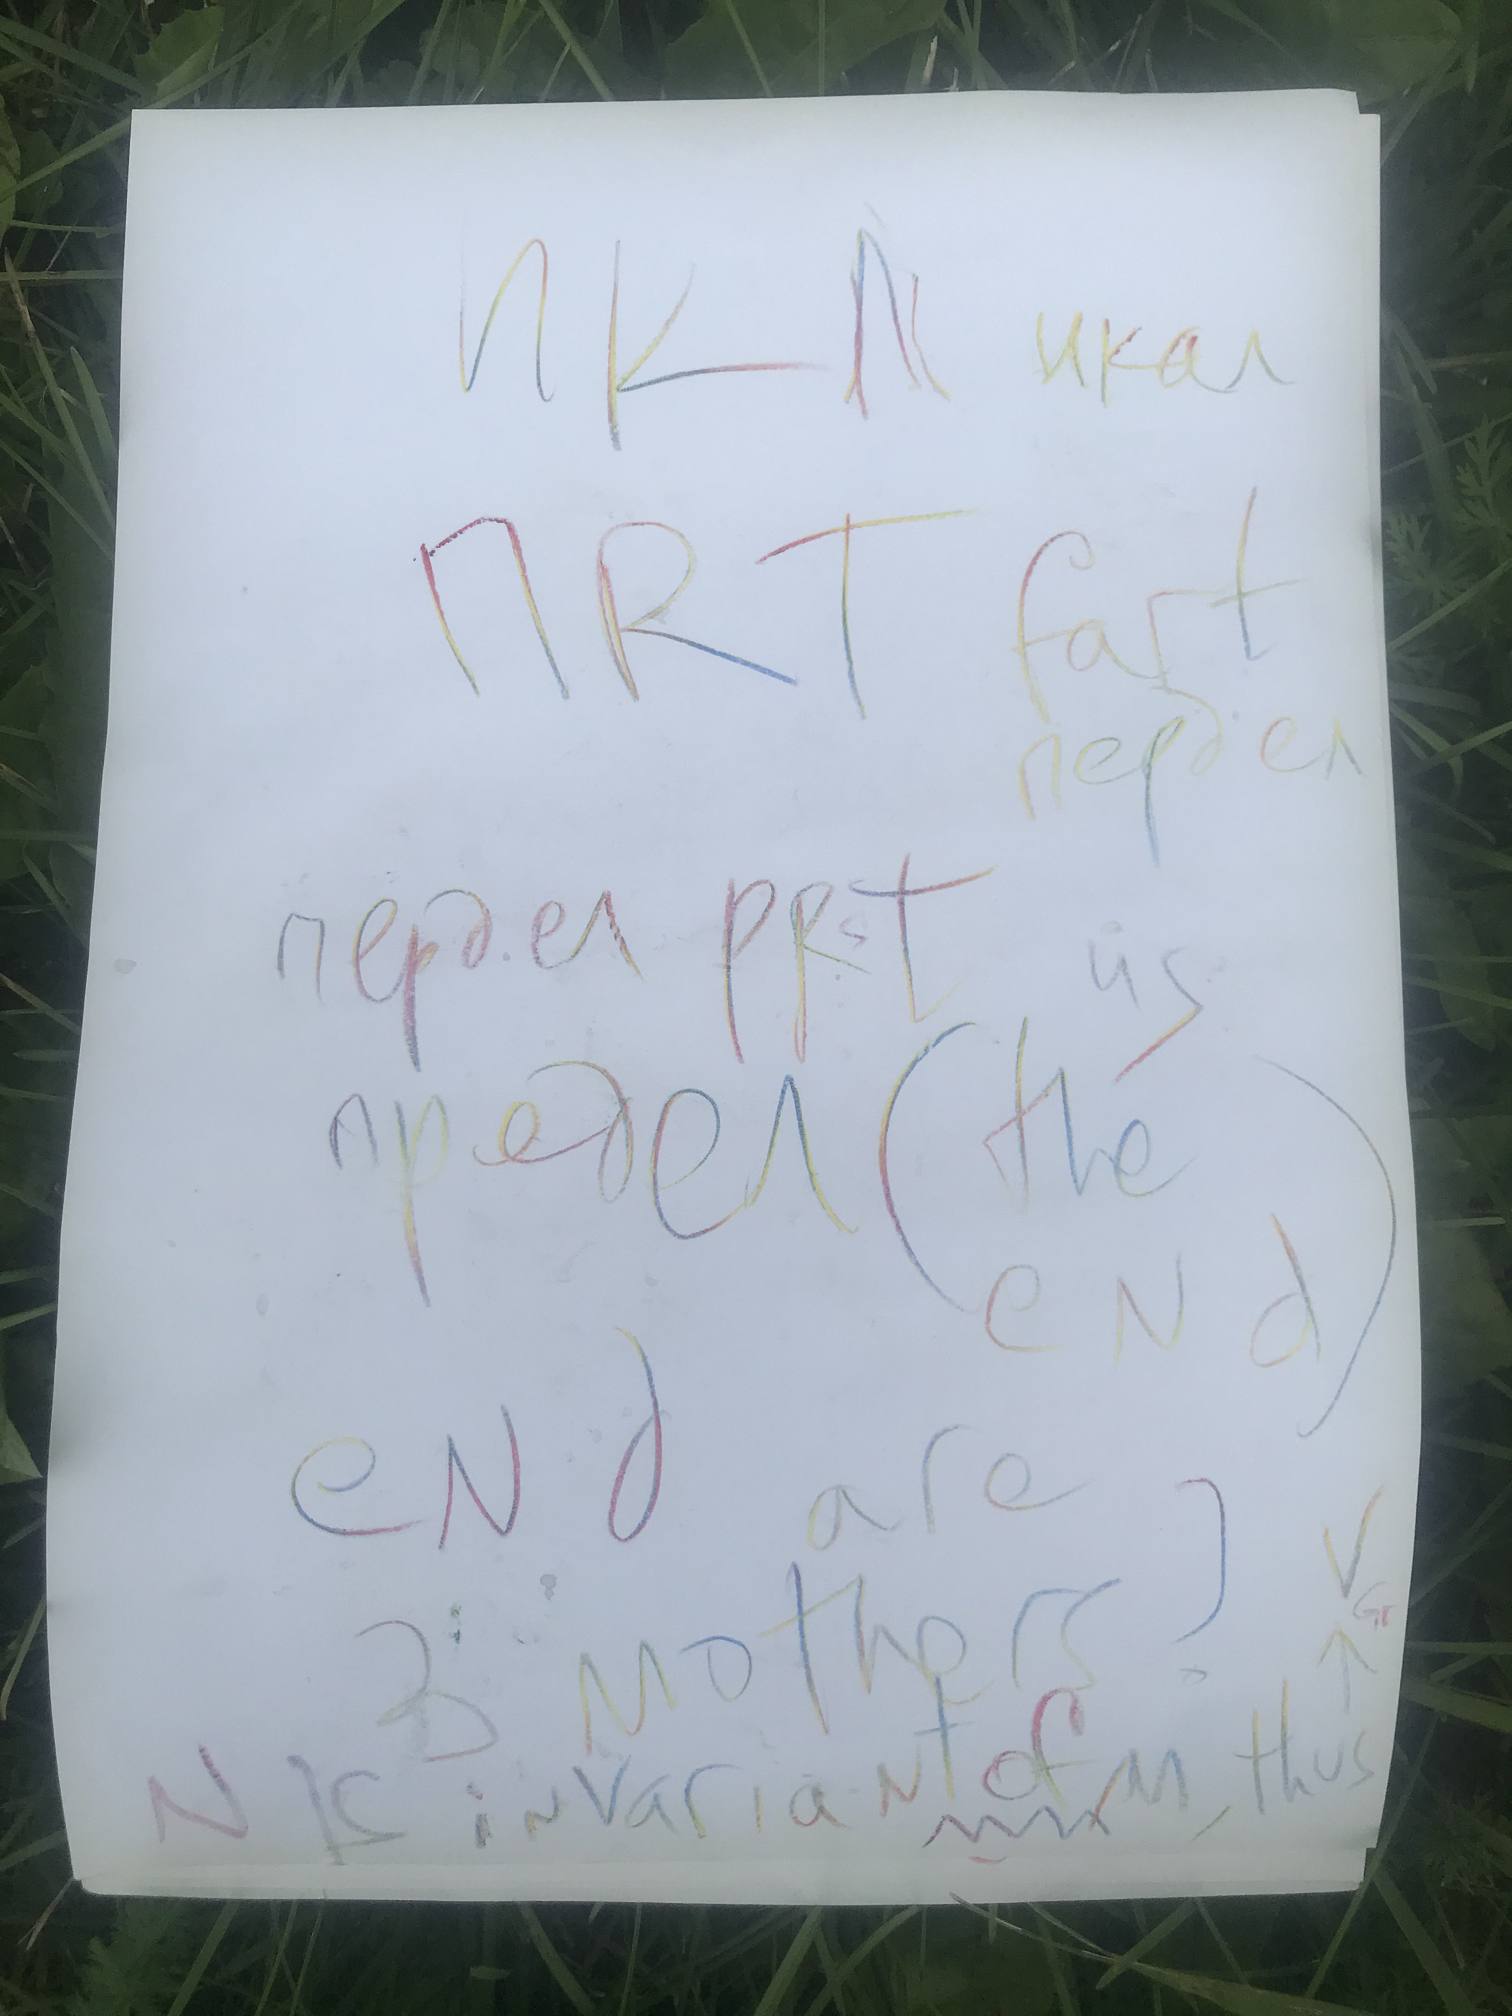 ИКЛ икал
ПRT fart
пердел
пердел PRST is
предел (the
end)
eNd are
3 Mothers]
N is invariant of M, thus